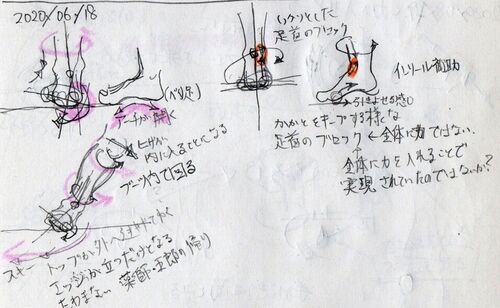 2020/06/18
(べタ足)
アーチが開く
ヒザが
内に入ることになる
ブーツ内で回る
トップが外へ
エッジが立つだけとなる
たわまない
薬師→五郎の帰り
スキー
がっクリとした
足首のブロック
インソール補助
引きよせる感◯
かかとをキープする様な
足首のブロック ← 全体に力ではない。
全体に力を入れることで
実現されていたのではないか?